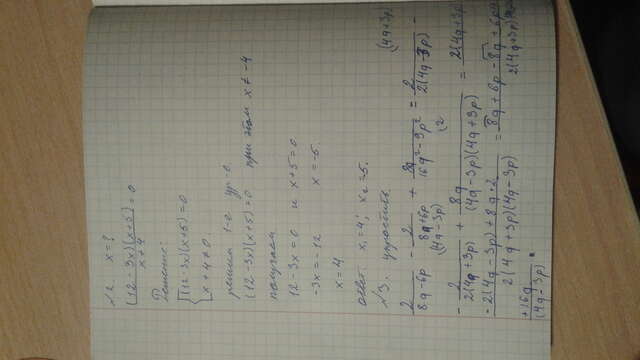 №2. x = ?
(12-3x)(x+5)/x+4 = 0
Решение:
{(12-3x)(x+5)=0
x+4≠0
решим 1-е ур-е
(12-3x)(x+5)=0 при этом x≠-4
получаем
12-3x=0 и x+5=0
-3x=-12 x=-5.
x=4
ответ. x₁=4; x₂=-5.
№3. упростить.
(4q+3p
2/8q-6p - 2/8q+6p + 8q/16q²-9p² = 2/2(4q-3p) -
(4q-3p) (2
- 2/2(4q+3p) + 8q/(4q-3p)(4q+3p) = 2(4q+3p)
-2(4q-3p)+8q·2/2(4q+3p)(4q-3p) = 8q+6p-8q+6p+
2(4q+3p)
+16q/(4q-3p)